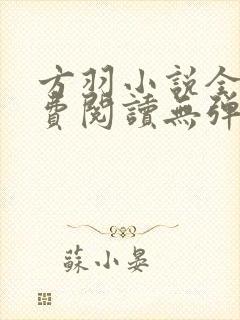 方羽小説全
費閱讀無彈
蘇小晏